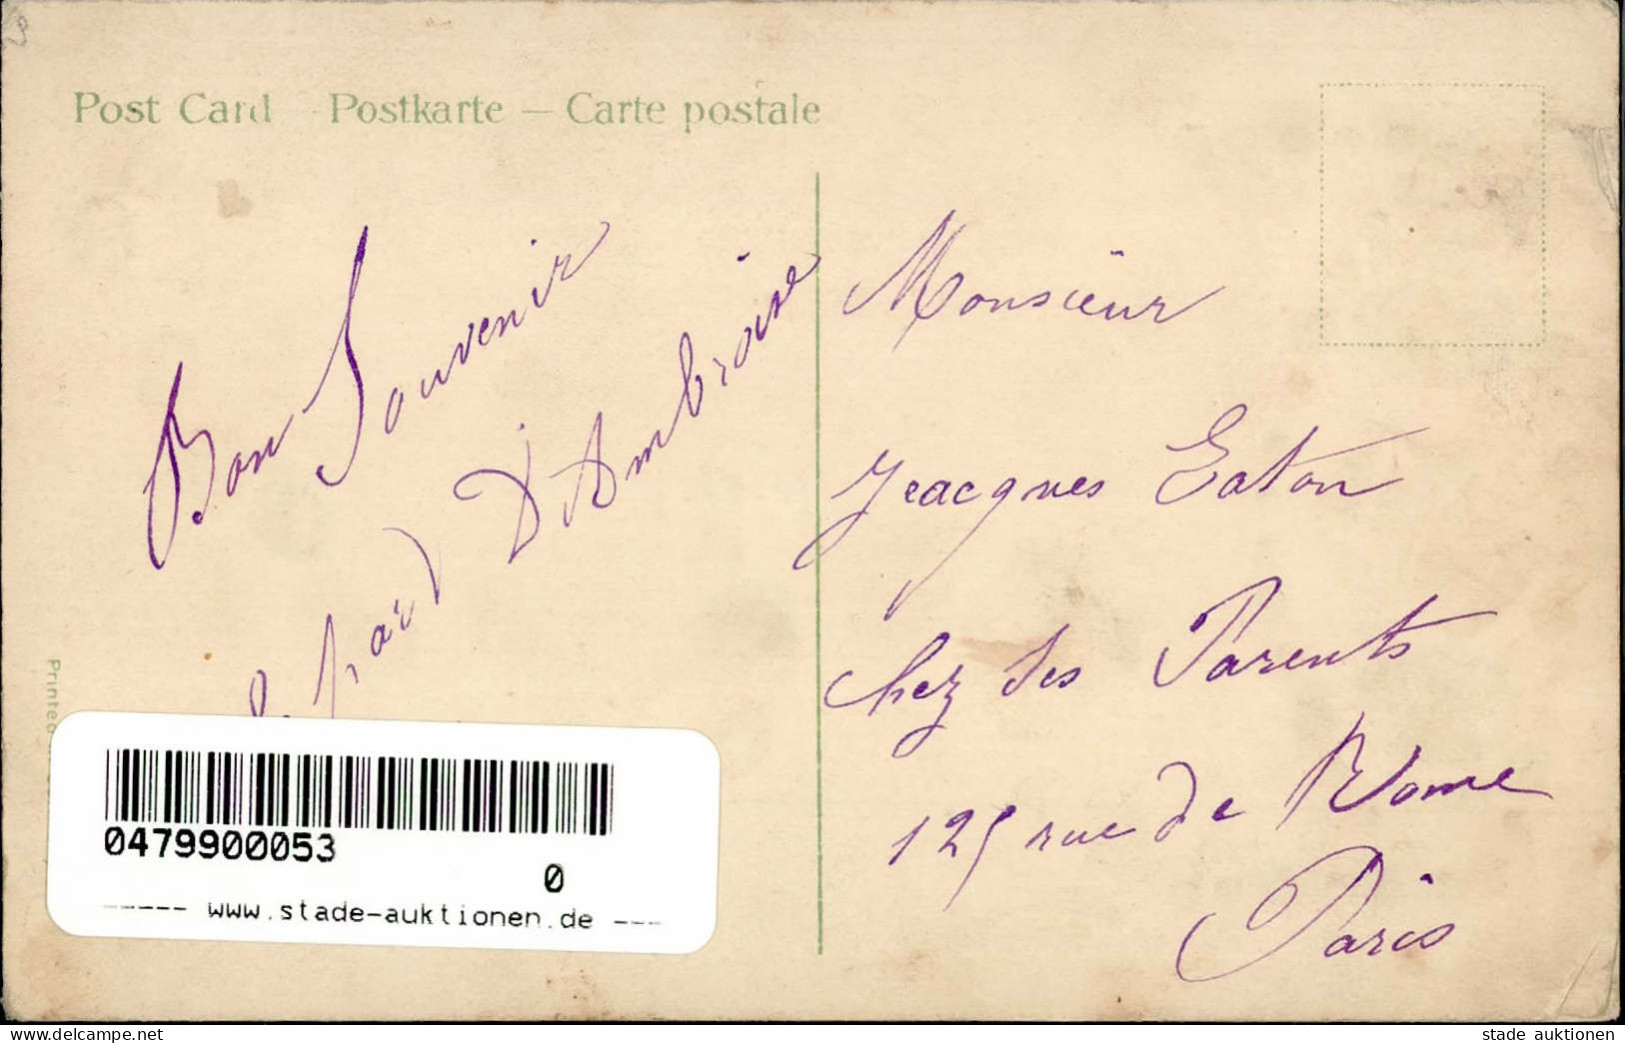 Post Card - Postkarte — Carte postale
Bon Souvenir
D'Ambroise
Monsieur
Jeacques Eaton
chez ses Parents
125 rue de Rome
Paris
Printed
0479900053
0
----- www.stade-auktionen.de ---
www.delcampe.net
stade auktionen